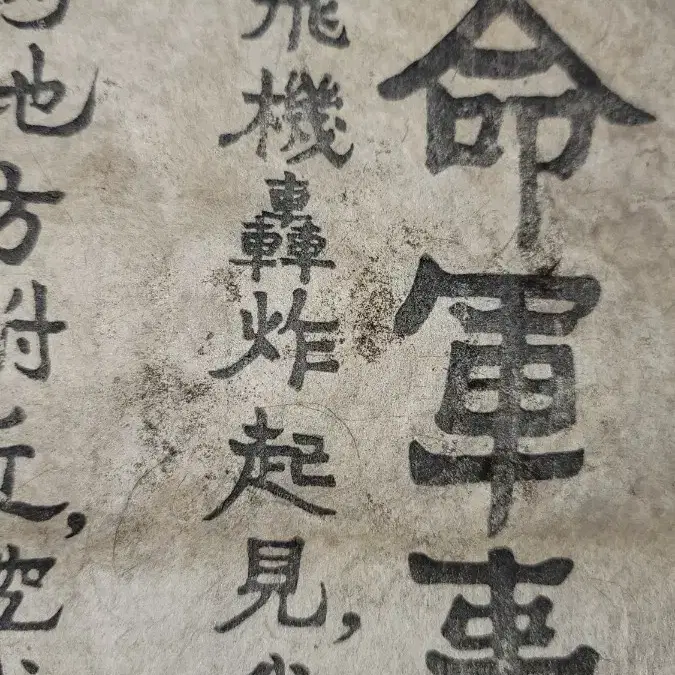 命軍事
飛機轟炸起見，
地方附近，挖